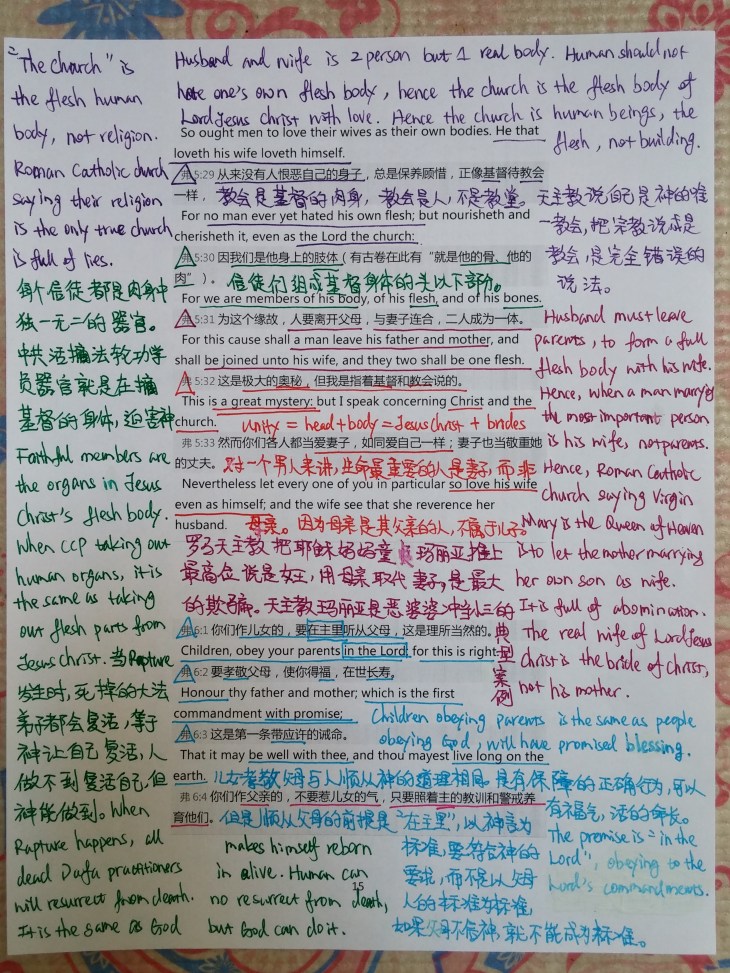 "The church" is
the flesh human
body, not religion.
Roman Catholic church
saying their religion
is the only true church
is full of lies.
每个信徒都是肉身中
独一无二的器官。
中共活摘法轮功学
员器官就是在摘
基督的身体,迫害神
Faithful members are
the organs in Jesus
Christ's flesh body.
When CCP taking out
human organs, it is
the same as taking
out flesh parts from
Jesus Christ. 当Rapture
发生时,死掉的大法
弟子都会复活,等于
神让自己复活,人
做不到复活自己,但
神能做到。When
Rapture happens, all
dead Dafa practitioners
will resurrect from death.
It is the same as God
makes himself reborn
in alive. Human can
no resurrect from death,
but God can do it.
Husband and wife is 2 person but 1 real body. Human should not
hate one's own flesh body, hence the church is the flesh body of
Lord Jesus Christ with love. Hence the church is human beings, the
flesh, not building.
So ought men to love their wives as their own bodies. He that
loveth his wife loveth himself.
弗 5:29 从来没有人恨恶自己的身子,总是保养顾惜,正像基督待教会
一样,
教会是基督的肉身,教会是人,不是教堂。
For no man ever yet hated his own flesh; but nourisheth and
cherisheth it, even as the Lord the church:
天主教说自己是神的唯
一教会,把宗教说成是
教会,是完全错误的
说法。
弗 5:30 因我们是他身上的肢体(有古卷在此有“就是他的骨、他的
肉”)。
信徒们组成基督身体的头以下部份。
For we are members of his body, of his flesh, and of his bones.
弗 5:31 为这个缘故,人要离开父母,与妻子连合,二人成为一体。
For this cause shall a man leave his father and mother, and
shall be joined unto his wife, and they two shall be one flesh.
弗 5:32 这是极大的奥秘,但我是指着基督和教会说的。
This is a great mystery: but I speak concerning Christ and the
church.
unity = head + body = Jesus Christ + brides
弗 5:33 然而你们各人都当爱妻子,如同爱自己一样;妻子也当敬重她
的丈夫。
对一个男人来讲,生命最重要的人是妻子,而非
Nevertheless let every one of you in particular so love his wife
even as himself; and the wife see that she reverence her
husband.
母亲。因为母亲是其父亲的人,不属于儿子。
Husband must leave
parents, to form a full
flesh body with his wife.
Hence, when a man marryes
the most important person
is his wife, not parents.
Hence, Roman Catholic
church saying Virgin
Mary is the Queen of Heaven
is to let the mother marrying
her own son as wife.
It is full of abomination.
The real wife of Lord Jesus
Christ is the bride of Christ,
not his mother.
罗马天主教把耶稣妈妈童贞玛丽亚推上
最高位说是女王,用母亲取代妻子,是最大
的欺骗。天主教玛丽亚是恶婆婆冲当小三的
典型案例
弗 6:1 你们作儿女的,要在主里听从父母,这是理所当然的。
Children, obey your parents in the Lord: for this is right.
弗 6:2 要孝敬父母,使你得福,在世长寿。
Honour thy father and mother; which is the first
commandment with promise;
弗 6:3 这是第一条带应许的诫命。
That it may be well with thee, and thou mayest live long on the
earth.
Children obeying parents is the same as people
obeying God, will have promised blessing.
儿女孝敬父母与人顺从神的道理相同。是有保障的正确行为,可以
有福气,活的命长。
弗 6:4 你们作父亲的,不要惹儿女的气,只要照着主的教训和警戒养
育他们。
但是顺从父母的前提是“在主里”,以神言为
标准,要符合神的
要求,而不是以父母
人的标准为标准,
如果父母不信神,就不能成为标准。
The premise is "in the
Lord", obeying to the
Lord's commandments.
15